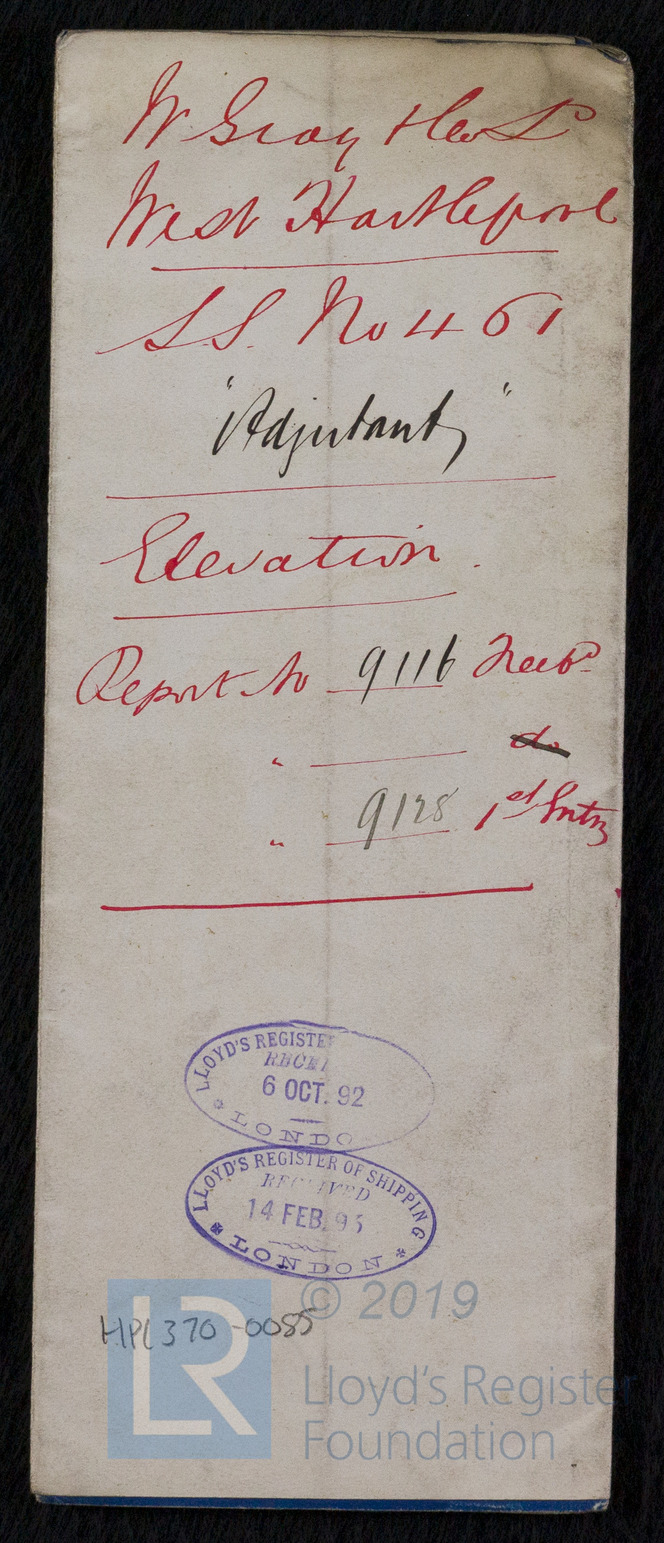 W Gray & Co Ld
West Hartlepool
S.S. No 461
"Adjutant"
Elevation.
Report No 9116 Freebd
" do
" 9128 1st Entry
LLOYD'S REGISTE
RECEI
6 OCT. 92
LONDO
LLOYD'S REGISTER OF SHIPPING
RECEIVED
14 FEB. 93
LONDON
© 2019
HPL370-0085
LR
Lloyd's Register
Foundation